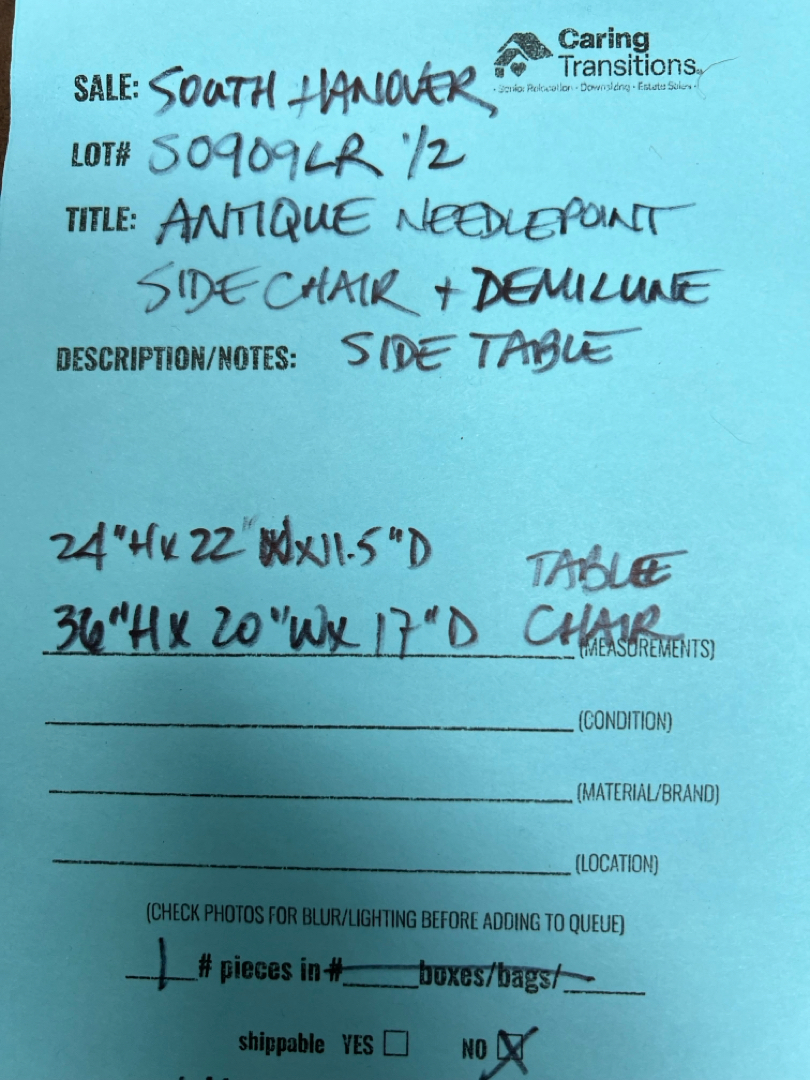 Caring
Transitions
· Senior Relocation · Downsizing · Estate Sales ·
SALE: SOUTH HANOVER
LOT# S0909LR 1/2
TITLE: ANTIQUE NEEDLEPOINT
SIDE CHAIR + DEMILUNE
DESCRIPTION/NOTES: SIDE TABLE
24"H x 22"W x 11.5"D TABLE
36"H x 20"W x 17"D CHAIR
(MEASUREMENTS)
(CONDITION)
(MATERIAL/BRAND)
(LOCATION)
(CHECK PHOTOS FOR BLUR/LIGHTING BEFORE ADDING TO QUEUE)
1 # pieces in # boxes/bags/
shippable YES ☐ NO ☒